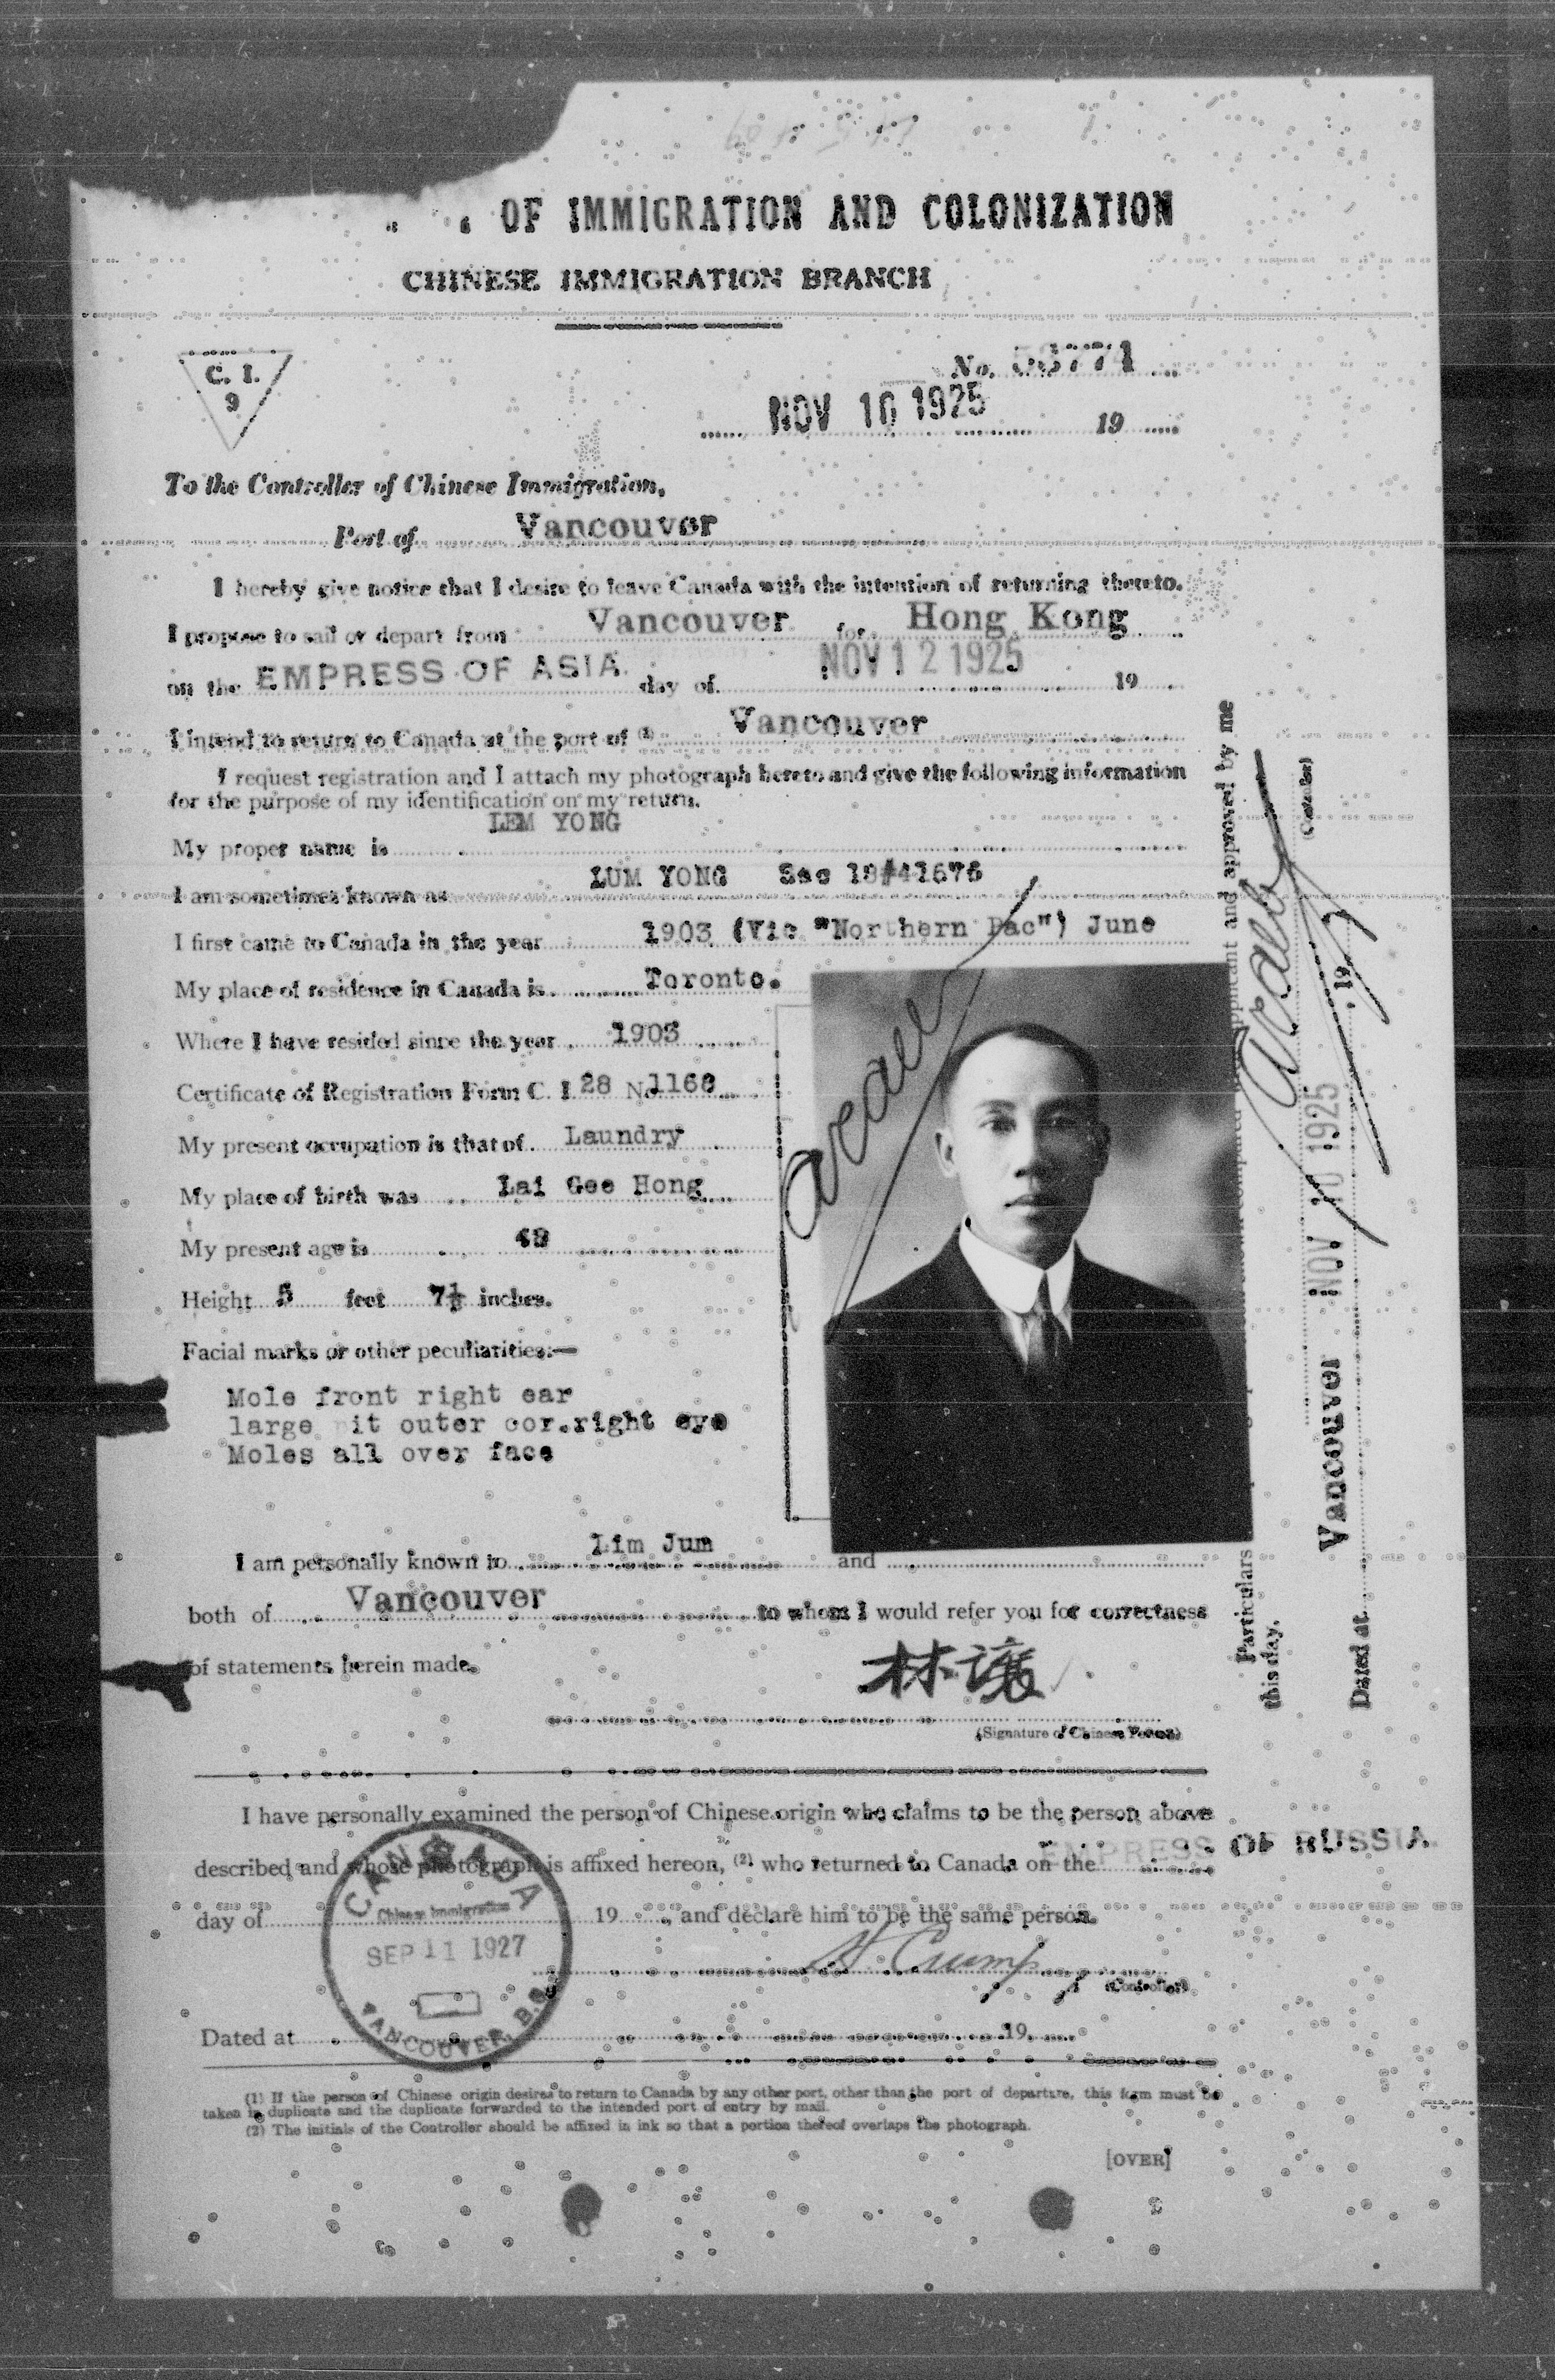 OF IMMIGRATION AND COLONIZATION
CHINESE IMMIGRATION BRANCH
C. I.
9
No.
NOV 10 1925 19
To the Controller of Chinese Immigration,
Port of Vancouver
I hereby give notice that I desire to leave Canada with the intention of returning thereto.
I propose to sail or depart from Vancouver for Hong Kong
on the EMPRESS OF ASIA day of NOV 12 1925 19
I intend to return to Canada at the port of (1) Vancouver
I request registration and I attach my photograph hereto and give the following information
for the purpose of my identification on my return.
LEM YONG
My proper name is
I am sometimes known as LUM YONG Sec 18#41676
I first came to Canada in the year 1903 (Vic "Northern Pac") June
My place of residence in Canada is Toronto.
Where I have resided since the year 1903
Certificate of Registration Form C. I. 28 No
My present occupation is that of Laundry
My place of birth was Lai Gee Hong
My present age is 49
Height 5 feet 7½ inches.
Facial marks or other peculiarities:—
Mole front right ear
large pit outer cor.right eye
Moles all over face
I am personally known to Lim Jum and
both of Vancouver to whom I would refer you for correctness
of statements herein made.
林讓
(Signature of Chinese Person)
I have personally examined the person of Chinese origin who claims to be the person above
described and whose photograph is affixed hereon, (2) who returned to Canada on the EMPRESS OF RUSSIA
day of 19 , and declare him to be the same person.
H. Crump
(Controller)
Dated at 19
CANADA
Chinese Immigration
SEP 11 1927
VANCOUVER, B.C.
(1) If the person of Chinese origin desires to return to Canada by any other port, other than the port of departure, this form must be
taken in duplicate and the duplicate forwarded to the intended port of entry by mail.
(2) The initials of the Controller should be affixed in ink so that a portion thereof overlaps the photograph.
[OVER]
Particulars applicant and approved by me
this day.
(Controller)
Dated at Vancouver NOV 10 1925 , 19